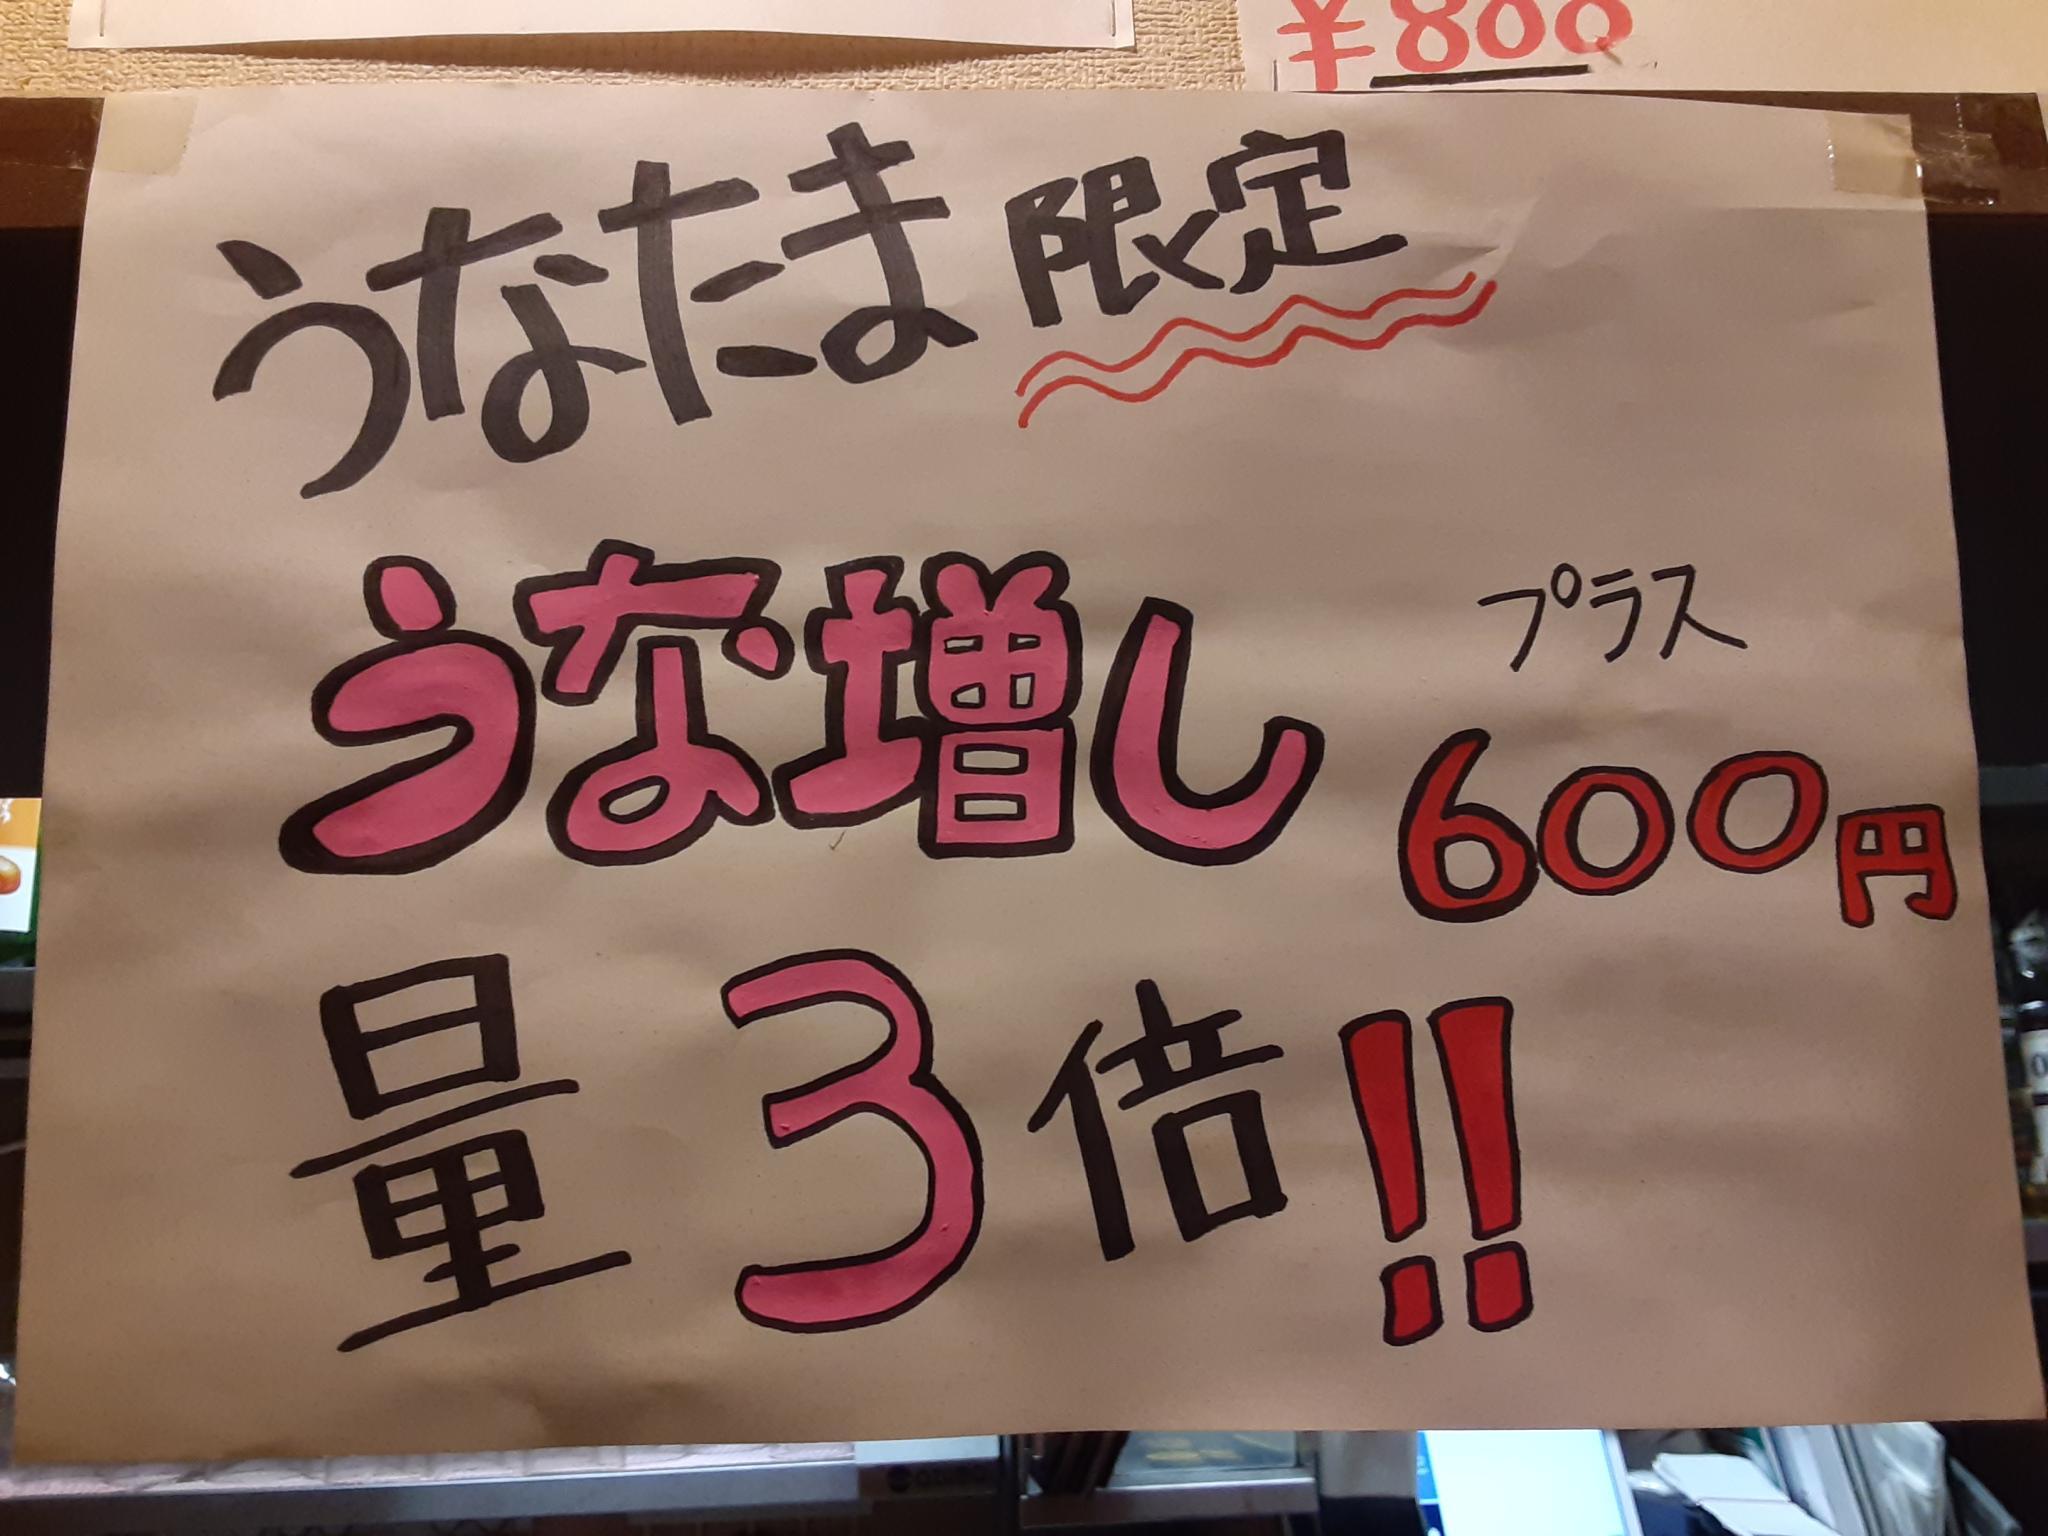 ¥800
うなたま限定
うな増し
プラス
600円
量3倍!!